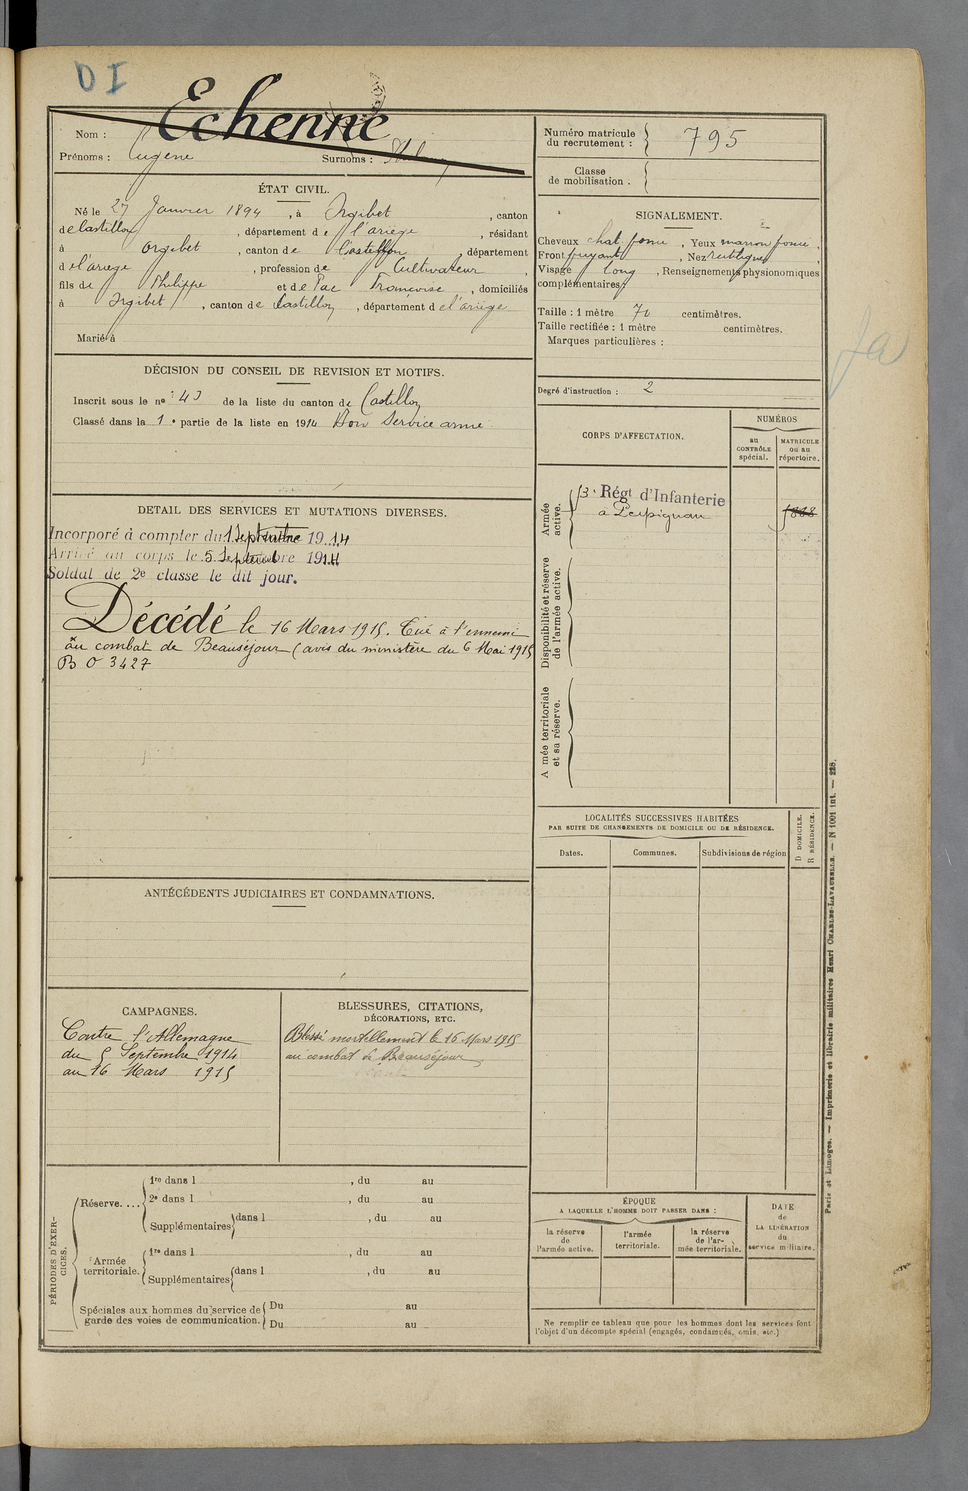 D I
Echenne
Nom :
Prénoms : Eugène Surnoms :
ÉTAT CIVIL.
Né le 27 Janvier 1894, à Orgibet, canton
de Castillon, département de l'ariège, résidant
à Orgibet, canton de Castillon, département
d el'ariège, profession de Cultivateur,
fils de Philippe et de Pac Françoise, domiciliés
à Orgibet, canton de Castillon, département d el'ariège
Marié à
DÉCISION DU CONSEIL DE REVISION ET MOTIFS.
Inscrit sous le nº 43 de la liste du canton de Castillon
Classé dans la 1e partie de la liste en 1914 Bon Service armé
DETAIL DES SERVICES ET MUTATIONS DIVERSES.
Incorporé à compter du 1 Septembre 1914
Arrivé au corps le 5 Septembre 1914
Soldat de 2e classe le dit jour.
Décédé le 16 Mars 1915. Tué à l'ennemi
au combat de Beauséjour (avis du ministère du 6 Mai 1915
B O 3427
ANTÉCÉDENTS JUDICIAIRES ET CONDAMNATIONS.
CAMPAGNES.
Contre l'Allemagne
du 5 Septembre 1914
au 16 Mars 1915
BLESSURES, CITATIONS,
DÉCORATIONS, ETC.
Blessé mortellement le 16 Mars 1915
au combat de Beauséjour
PÉRIODES D'EXERCICES.
Réserve.... 1re dans l , du au
2e dans l , du au
Supplémentaires dans l , du au
Armée territoriale. 1re dans l , du au
Supplémentaires dans l , du au
Spéciales aux hommes du service de garde des voies de communication. Du au
Du au
Numéro matricule
du recrutement : 795
Classe
de mobilisation .
SIGNALEMENT.
Cheveux chat. foncé, Yeux marron foncé,
Front fuyant, Nez rectiligne,
Visage long, Renseignements physionomiques
complémentaires
Taille : 1 mètre 70 centimètres.
Taille rectifiée : 1 mètre centimètres.
Marques particulières :
Degré d'instruction : 2
CORPS D'AFFECTATION.
NUMÉROS
au
CONTRÔLE
spécial.
MATRICULE
ou au
répertoire.
Armée
active.
53e Régt d'Infanterie
à Perpignan
Disponibilité et réserve
de l'armée active.
A mée territoriale
et sa réserve.
LOCALITÉS SUCCESSIVES HABITÉES
PAR SUITE DE CHANGEMENTS DE DOMICILE OU DE RÉSIDENCE.
Dates. Communes. Subdivisions de région
D DOMICILE.
R RÉSIDENCE.
ÉPOQUE
A LAQUELLE L'HOMME DOIT PASSER DANS :
la réserve
de
l'armée active.
l'armée
territoriale.
la réserve
de l'ar-
mée territoriale.
DATE
de
LA LIBÉRATION
du
service militaire.
Ne remplir ce tableau que pour les hommes dont les services font
l'objet d'un décompte spécial (engagés, condamnés, omis, etc.)
Paris et Limoges. — Imprimerie et librairie militaires Henri CHARLES-LAVAUZELLE. — N 1001 int. — 228.